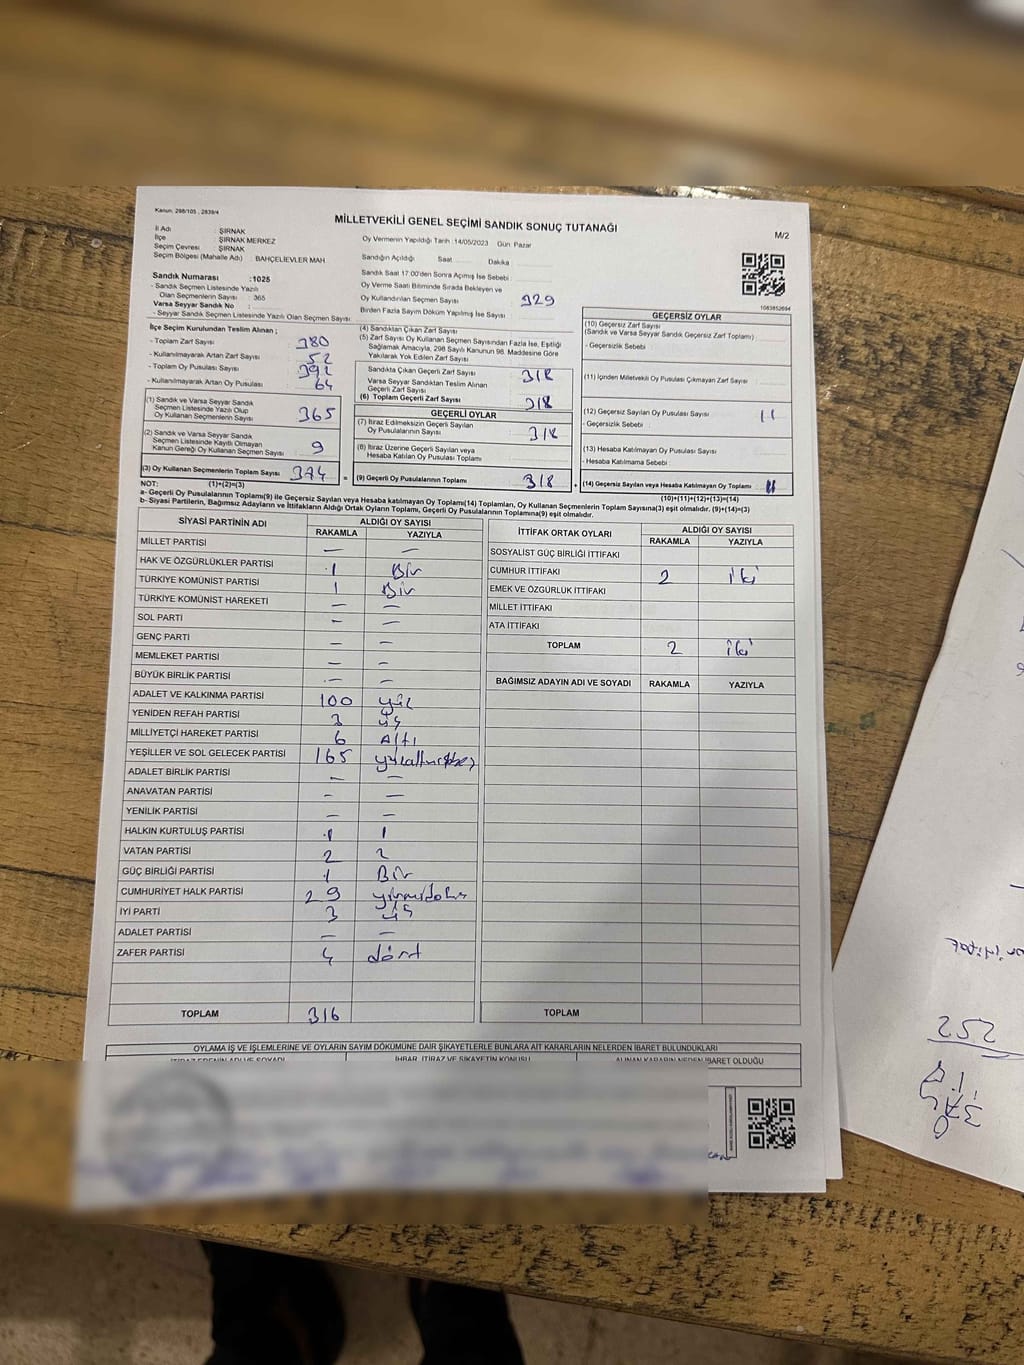 Kanun: 298/105 , 2839/4
MİLLETVEKİLİ GENEL SEÇİMİ SANDIK SONUÇ TUTANAĞI
M/2
İl Adı : ŞIRNAK
İlçe : ŞIRNAK MERKEZ
Seçim Çevresi : ŞIRNAK
Seçim Bölgesi (Mahalle Adı) BAHÇELİEVLER MAH
Oy Vermenin Yapıldığı Tarih :14/05/2023 Gün Pazar
Sandığın Açıldığı Saat Dakika
Sandık Saat 17.00'den Sonra Açılmış İse Sebebi
Oy Verme Saati Bitiminde Sırada Bekleyen ve
Oy Kullandırılan Seçmen Sayısı 329
Birden Fazla Sayım Döküm Yapılmış İse Sayısı
Sandık Numarası :1025
- Sandık Seçmen Listesinde Yazılı
Olan Seçmenlerin Sayısı : 365
Varsa Seyyar Sandık No :
- Seyyar Sandık Seçmen Listesinde Yazılı Olan Seçmen Sayısı
1083852694
İlçe Seçim Kurulundan Teslim Alınan ;
- Toplam Zarf Sayısı 380
- Kullanılmayarak Artan Zarf Sayısı 52
- Toplam Oy Pusulası Sayısı 392
- Kullanılmayarak Artan Oy Pusulası 64
(1) Sandık ve Varsa Seyyar Sandık
Seçmen Listesinde Yazılı Olup
Oy Kullanan Seçmenlerin Sayısı 365
(2) Sandık ve Varsa Seyyar Sandık
Seçmen Listesinde Kayıtlı Olmayan
Kanun Gereği Oy Kullanan Seçmen Sayısı 9
(3) Oy Kullanan Seçmenlerin Toplam Sayısı 374
(4) Sandıktan Çıkan Zarf Sayısı
(5) Zarf Sayısı Oy Kullanan Seçmen Sayısından Fazla İse, Eşitliği
Sağlamak Amacıyla, 298 Sayılı Kanunun 98. Maddesine Göre
Yakılarak Yok Edilen Zarf Sayısı
Sandıkta Çıkan Geçerli Zarf Sayısı 318
Varsa Seyyar Sandıktan Teslim Alınan
Geçerli Zarf Sayısı
(6) Toplam Geçerli Zarf Sayısı 318
GEÇERLİ OYLAR
(7) İtiraz Edilmeksizin Geçerli Sayılan
Oy Pusulalarının Sayısı 318
(8) İtiraz Üzerine Geçerli Sayılan veya
Hesaba Katılan Oy Pusulası Toplamı
= (9) Geçerli Oy Pusulalarının Toplamı 318 +
GEÇERSİZ OYLAR
(10) Geçersiz Zarf Sayısı
(Sandık ve Varsa Seyyar Sandık Geçersiz Zarf Toplamı)
- Geçersizlik Sebebi
(11) İçinden Milletvekili Oy Pusulası Çıkmayan Zarf Sayısı
(12) Geçersiz Sayılan Oy Pusulası Sayısı 11
- Geçersizlik Sebebi
(13) Hesaba Katılmayan Oy Pusulası Sayısı
- Hesaba Katılmama Sebebi
(14) Geçersiz Sayılan veya Hesaba Katılmayan Oy Toplamı 11
NOT: (1)+(2)=(3)
(10)+(11)+(12)+(13)=(14)
a- Geçerli Oy Pusulalarının Toplamı(9) ile Geçersiz Sayılan veya Hesaba katılmayan Oy Toplamı(14) Toplamları, Oy Kullanan Seçmenlerin Toplam Sayısına(3) eşit olmalıdır. (9)+(14)=(3)
b- Siyasi Partilerin, Bağımsız Adayların ve İttifakların Aldığı Ortak Oyların Toplamı, Geçerli Oy Pusulalarının Toplamına(9) eşit olmalıdır.
SİYASİ PARTİNİN ADI ALDIĞI OY SAYISI
RAKAMLA YAZIYLA
MİLLET PARTİSİ — —
HAK VE ÖZGÜRLÜKLER PARTİSİ 1 Bir
TÜRKİYE KOMÜNİST PARTİSİ 1 Bir
TÜRKİYE KOMÜNİST HAREKETİ — —
SOL PARTİ — —
GENÇ PARTİ — —
MEMLEKET PARTİSİ — —
BÜYÜK BİRLİK PARTİSİ — —
ADALET VE KALKINMA PARTİSİ 100 yüz
YENİDEN REFAH PARTİSİ 3 üç
MİLLİYETÇİ HAREKET PARTİSİ 6 Altı
YEŞİLLER VE SOL GELECEK PARTİSİ 165
ADALET BİRLİK PARTİSİ — —
ANAVATAN PARTİSİ — —
YENİLİK PARTİSİ — —
HALKIN KURTULUŞ PARTİSİ 1 1
VATAN PARTİSİ 2 2
GÜÇ BİRLİĞİ PARTİSİ 1 Bir
CUMHURİYET HALK PARTİSİ 29
İYİ PARTİ 3 üç
ADALET PARTİSİ — —
ZAFER PARTİSİ 4 dört
TOPLAM 316
İTTİFAK ORTAK OYLARI ALDIĞI OY SAYISI
RAKAMLA YAZIYLA
SOSYALİST GÜÇ BİRLİĞİ İTTİFAKI
CUMHUR İTTİFAKI 2 iki
EMEK VE ÖZGÜRLÜK İTTİFAKI
MİLLET İTTİFAKI
ATA İTTİFAKI
TOPLAM 2 iki
BAĞIMSIZ ADAYIN ADI VE SOYADI RAKAMLA YAZIYLA
TOPLAM
OYLAMA İŞ VE İŞLEMLERİNE VE OYLARIN SAYIM DÖKÜMÜNE DAİR ŞİKAYETLERLE BUNLARA AİT KARARLARIN NELERDEN İBARET BULUNDUKLARI
İTİRAZ EDENİN ADI VE SOYADI İHBAR, İTİRAZ VE ŞİKAYETİN KONUSU ALINAN KARARIN NEDEN İBARET OLDUĞU
252